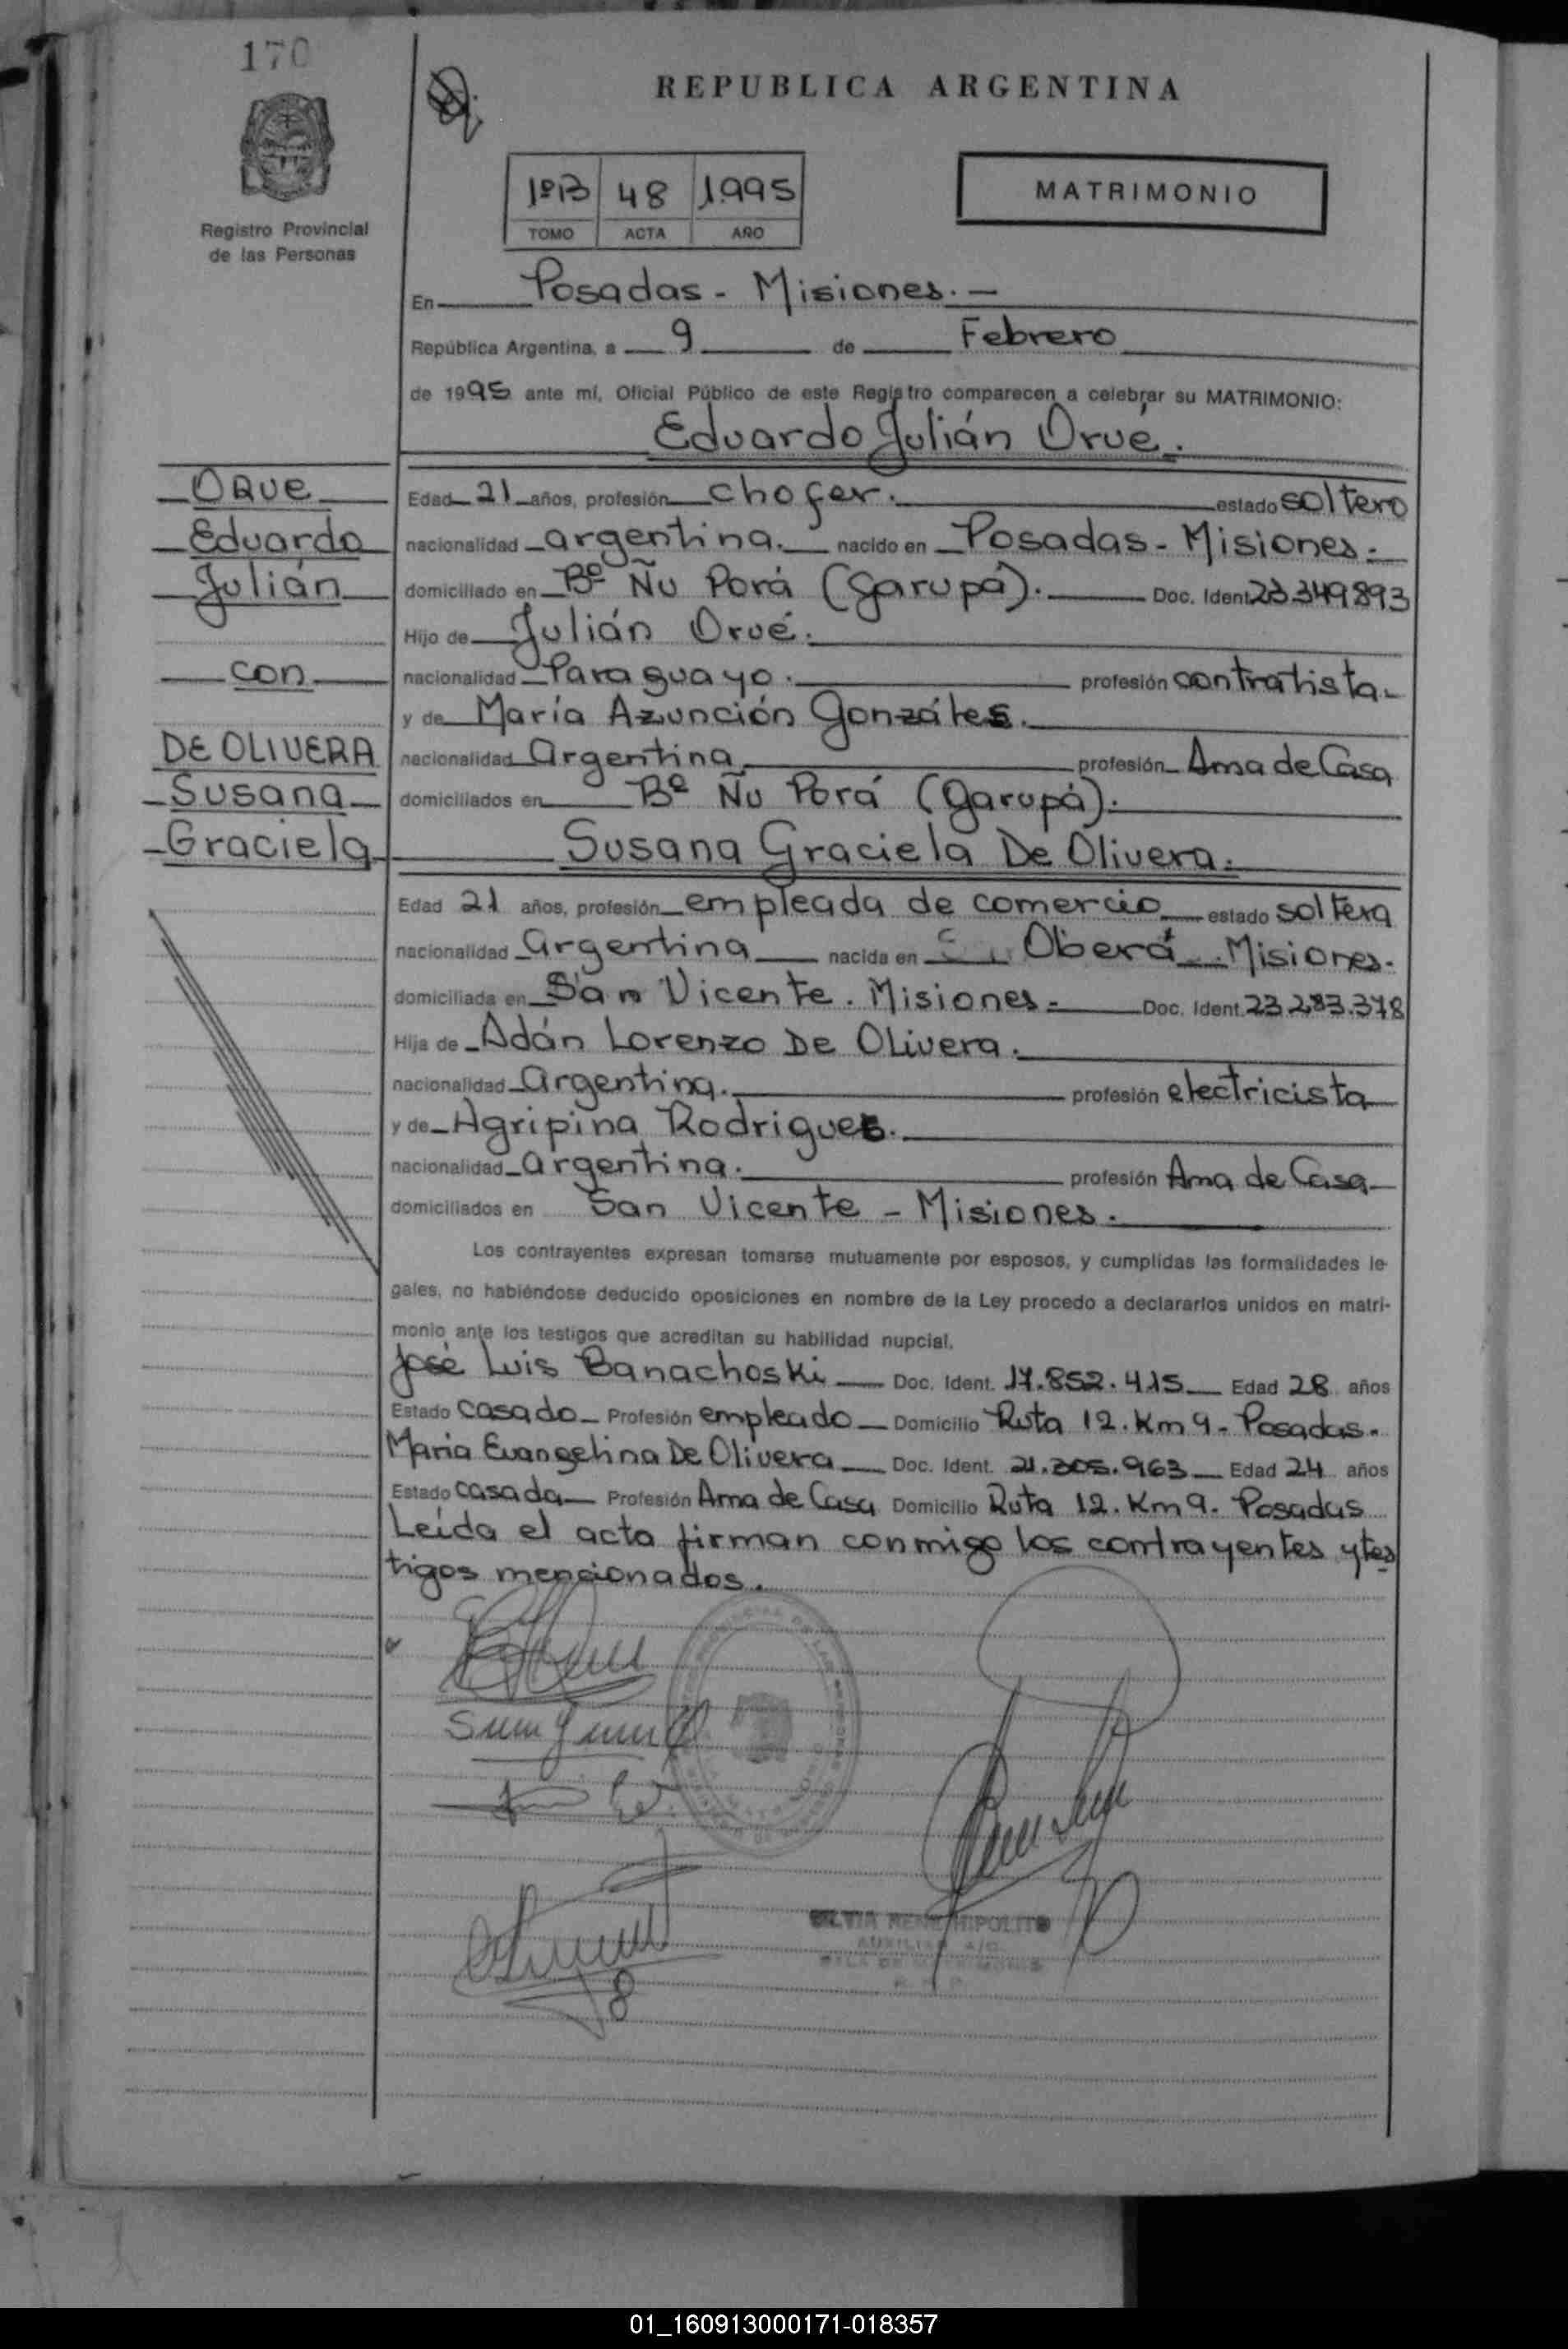 170
REPUBLICA ARGENTINA
1ºB 48 1995
TOMO ACTA AÑO
MATRIMONIO
Registro Provincial
de las Personas
En Posadas - Misiones. -
República Argentina, a 9 de Febrero
de 1995 ante mí, Oficial Público de este Registro comparecen a celebrar su MATRIMONIO:
Eduardo Julián Orué.
ORUE
Eduardo
Julián
con
DE OLIVERA
Susana
Graciela
Edad 21 años, profesión chofer. estado soltero
nacionalidad argentina. nacido en Posadas - Misiones.
domiciliado en Bº Ñu Porá (Garupá). Doc. Ident. 23.349.893
Hijo de Julián Orué.
nacionalidad Paraguayo. profesión contratista
y de María Azunción Gonzáles.
nacionalidad Argentina profesión Ama de Casa
domiciliados en Bº Ñu Porá (Garupá).
Susana Graciela De Olivera.
Edad 21 años, profesión empleada de comercio estado soltera
nacionalidad argentina nacida en Oberá - Misiones.
domiciliada en San Vicente. Misiones. Doc. Ident. 23.283.378
Hija de Adán Lorenzo De Olivera.
nacionalidad argentina. profesión electricista
y de Agripina Rodrigues.
nacionalidad argentina. profesión Ama de Casa
domiciliados en San Vicente - Misiones.
Los contrayentes expresan tomarse mutuamente por esposos, y cumplidas las formalidades le-
gales, no habiéndose deducido oposiciones en nombre de la Ley procedo a declararlos unidos en matri-
monio ante los testigos que acreditan su habilidad nupcial.
José Luis Banachoski Doc. Ident. 17.852.415 Edad 28 años
Estado casado Profesión empleado Domicilio Ruta 12. Km 9 - Posadas.
Maria Evangelina De Olivera Doc. Ident. 21.305.963 Edad 24 años
Estado casada Profesión Ama de Casa Domicilio Ruta 12. Km 9. Posadas
Leída el acta firman conmigo los contrayentes y tes
tigos mencionados.
HIPOLITO
01_160913000171-018357